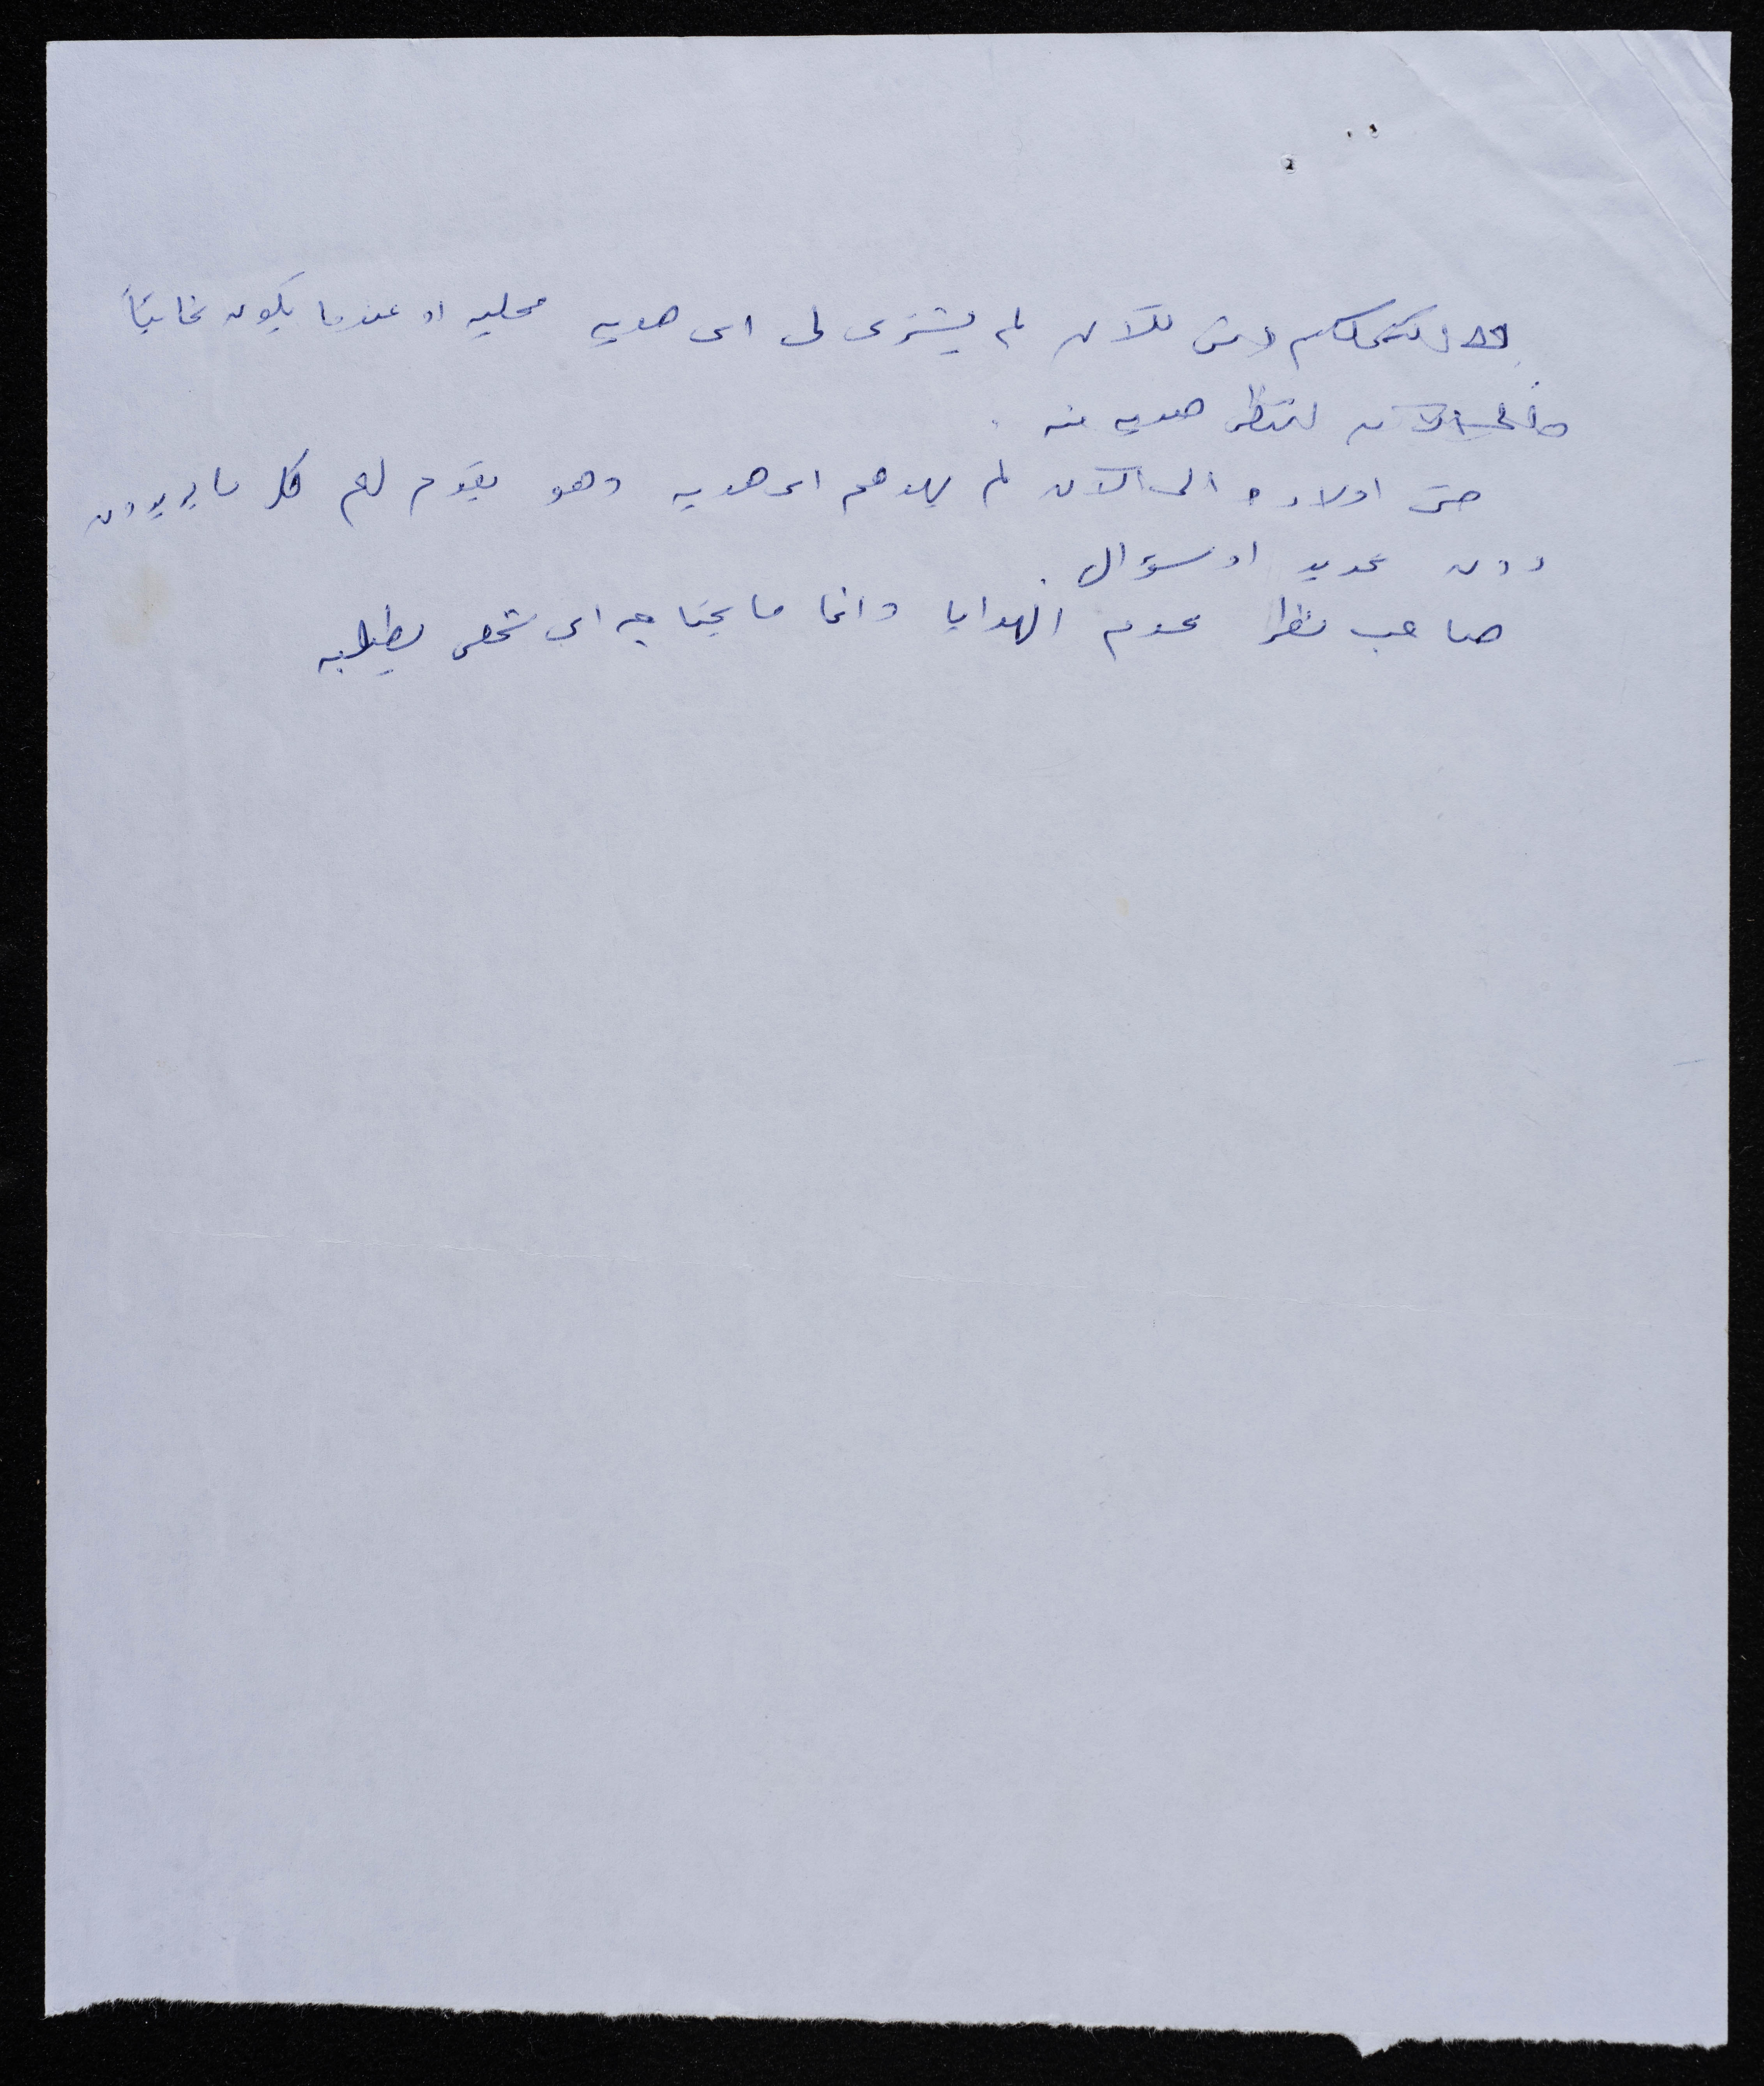 وحتى للآن لم يشترى لى اى هديه محليه او عندما يكون غائباً
والى الآن انتظر هديه منه .
حتى اولاده الى الآن لم يهدهم اى هديه وهو يقدم لهم كل ما يريدون
دون تحديد او سؤال .
صاحب نظرا عدم الهدايا وانما ما يحتاجه اى شخص يطلبه